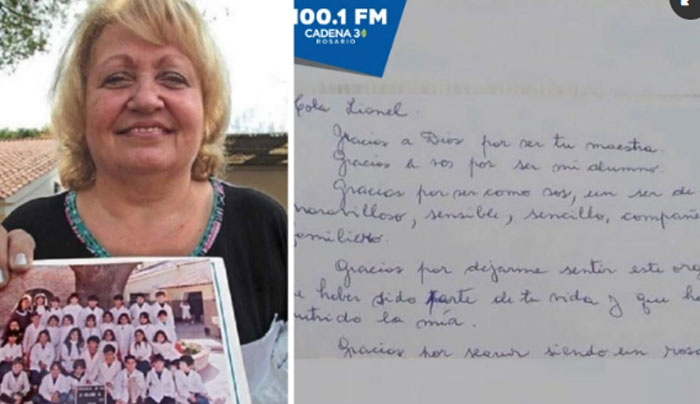 100.1 FM
CADENA 3
ROSARIO
Hola Lionel.
Gracias a Dios por ser tu maestra.
Gracias a vos por ser mi alumno.
Gracias por ser como sos, un ser de
maravilloso, sensible, sencillo, compañe
familiero.
Gracias por dejarme sentir este org
de haber sido parte de tu vida y que h
nutrido la mía.
Gracias por seguir siendo un rosa